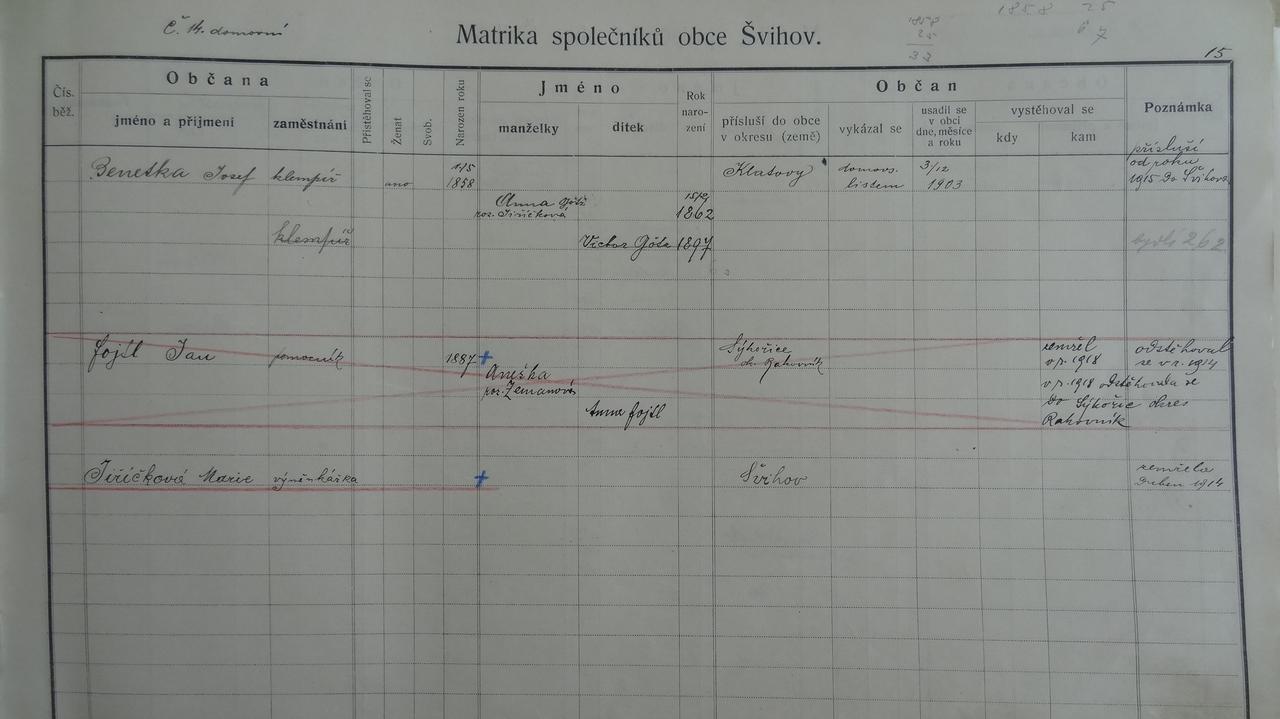 Č. 14. domovní
1858 25
1858
25
33
6 7
Matrika společníků obce Švihov.
15
Čís. běž.
Občana
jméno a přijmení
zaměstnání
Přistěhoval se
Ženat
Svob.
Narozen roku
Jméno
manželky
dítek
Rok naro- zení
Občan
přísluší do obce v okresu (země)
vykázal se
usadil se v obci dne, měsíce a roku
vystěhoval se
kdy
kam
Poznámka
Benetka Josef klempíř ano 1858 Klatovy domovs. listem 3/12 1903
přísluší od roku 1915 do Švihova
Anna
roz. Jiříčková 1862
klempíř Victor 1897
262
Fojtl Jan pomocník 1887 + Sýkořice ok. Rakovník zemřel v r. 1918 odstěhoval se v r. 1914
Anežka
roz. Zemanová
v r. 1918 odstěhovala se
do Sýkořic okres
Rakovník
Anna Fojtl
Jiříčková Marie výměnkářka + Švihov zemřela Duben 1914